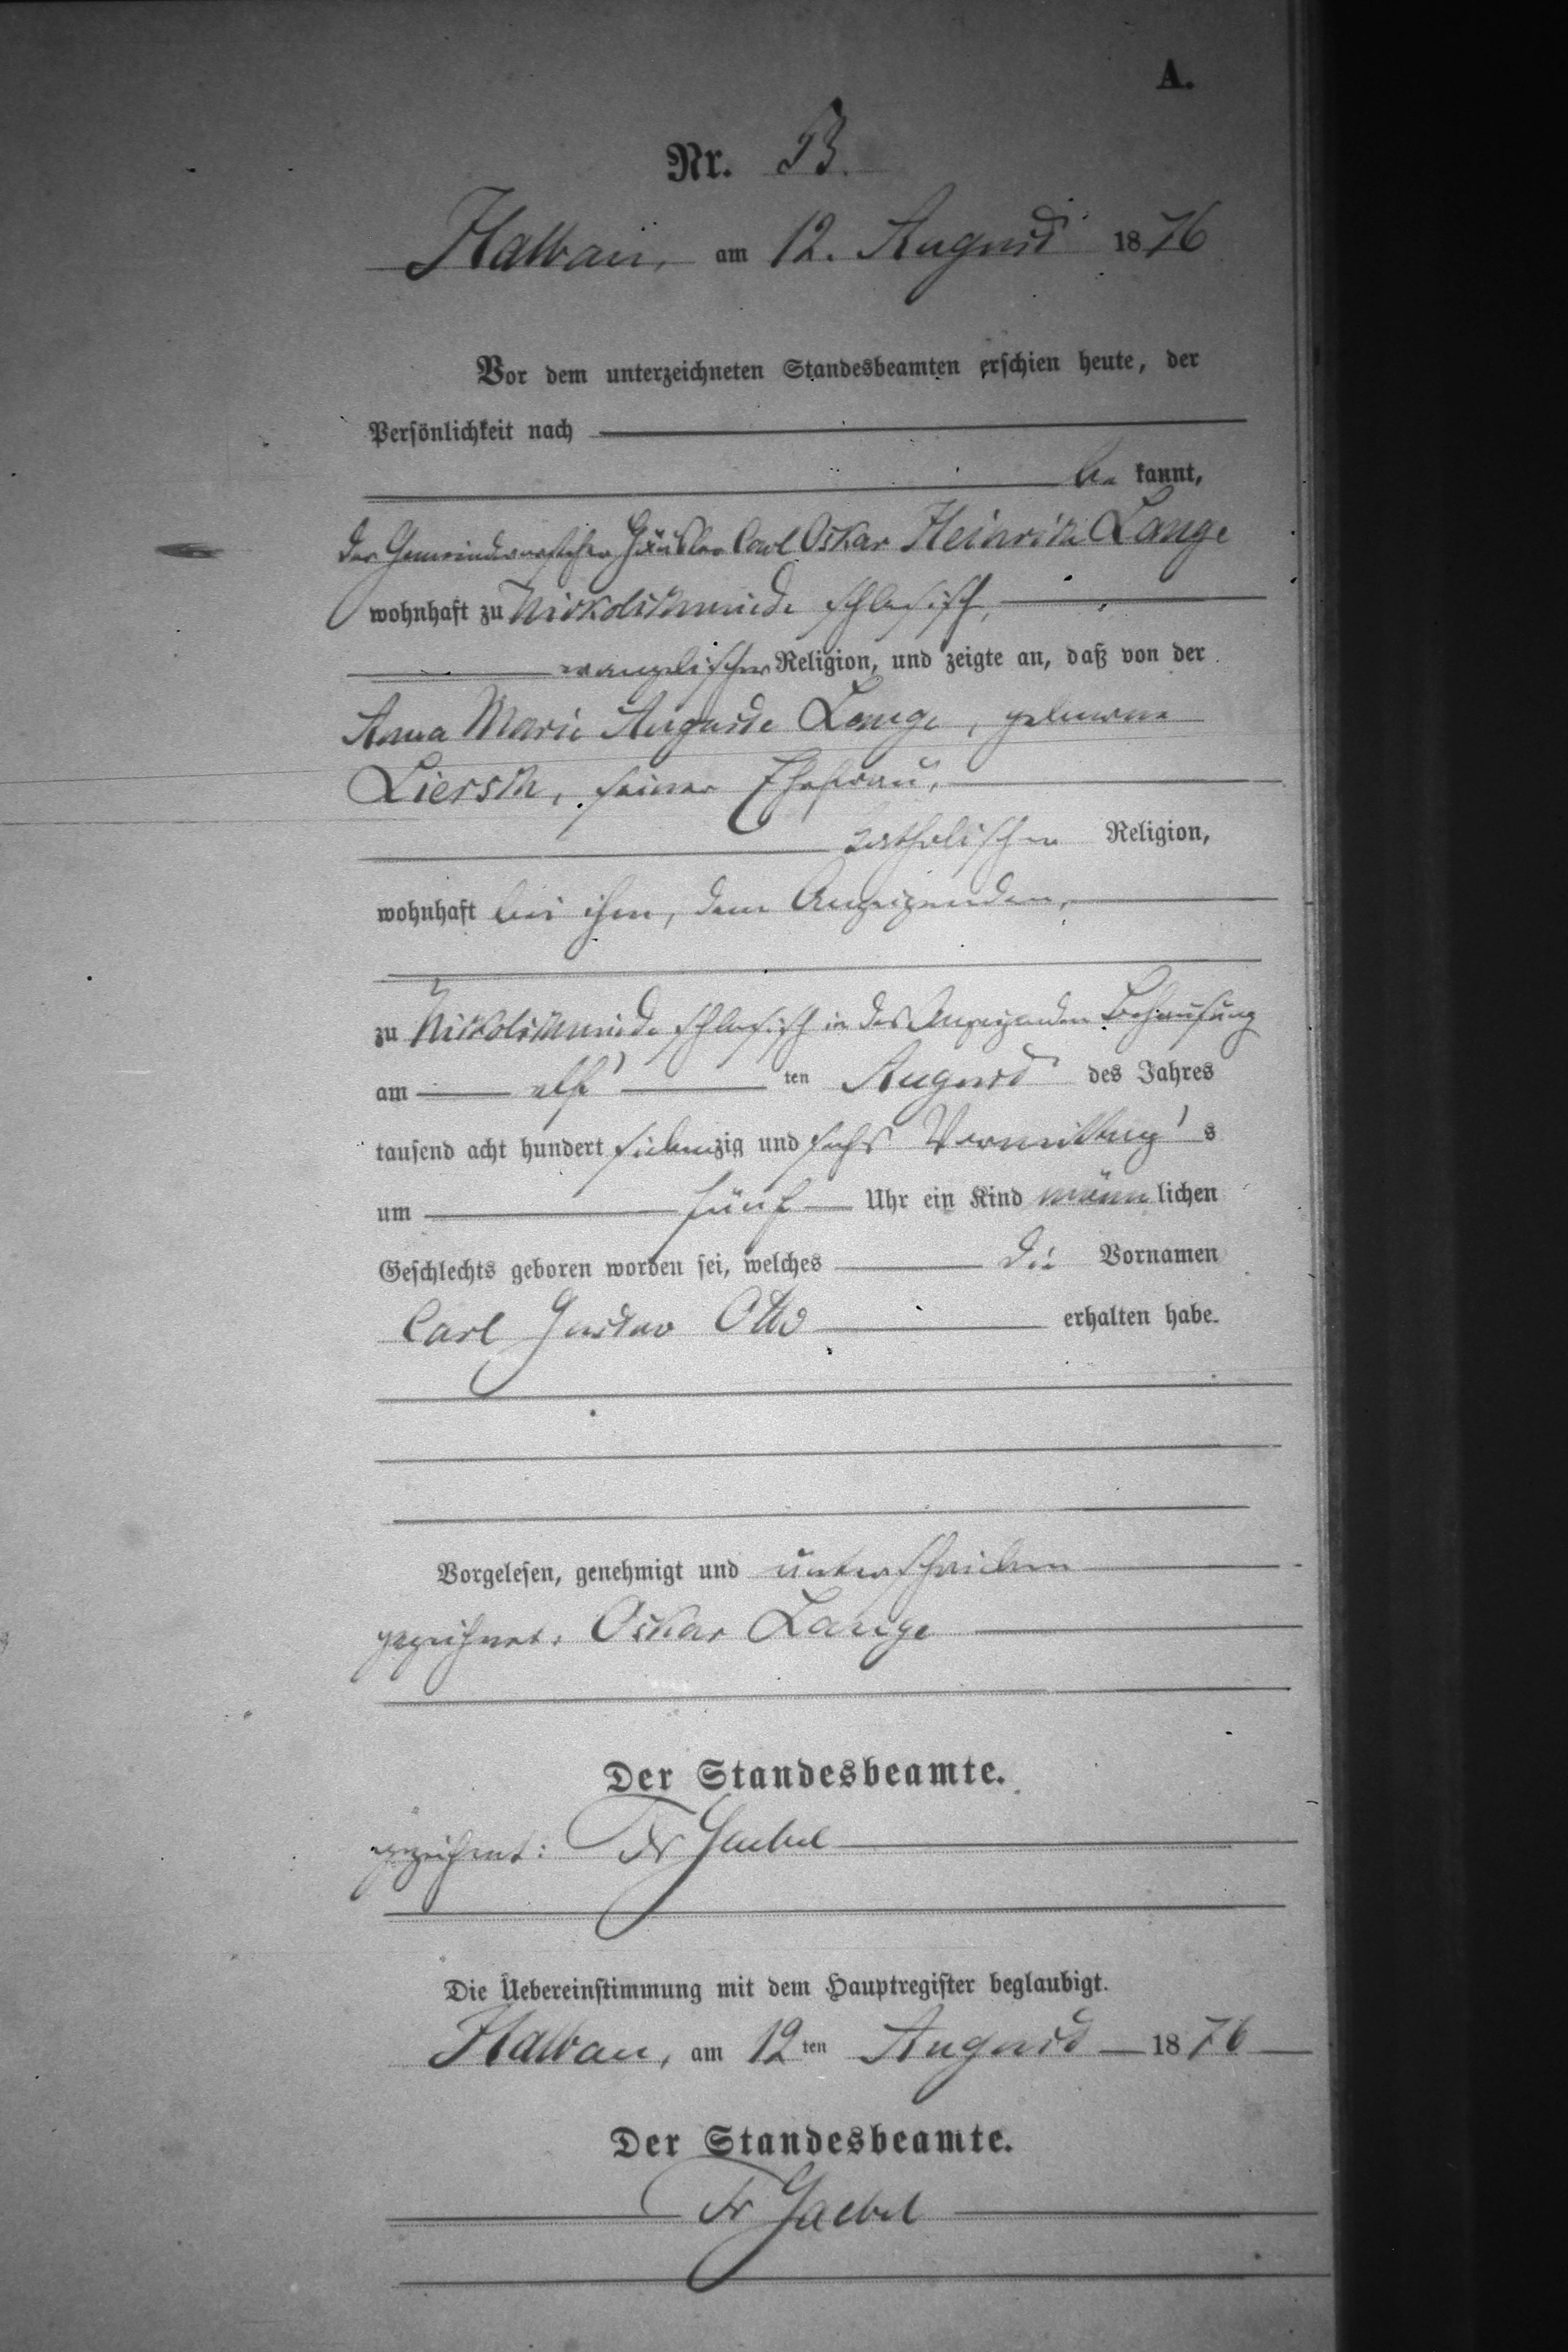 A.
Nr. 53.
Halbau, am 12. August 1876
Vor dem unterzeichneten Standesbeamten erschien heute, der
Persönlichkeit nach
be kannt,
der Gemeindevorsteher Häusler Carl Oskar Heinrich Lange
wohnhaft zu Nickolschmiede schlesisch,
evangelischer Religion, und zeigte an, daß von der
Anna Marie Auguste Lange, geborene
Liersch, seiner Ehefrau,
katholischen Religion,
wohnhaft bei ihm, dem Anzeigenden,
zu Nickolschmiede schlesisch in des Anzeigenden Behausung
am elf ten August des Jahres
tausend acht hundert siebenzig und sechs Vormittag s
um fünf Uhr ein Kind männ lichen
Geschlechts geboren worden sei, welches die Vornamen
Carl Gustav Otto erhalten habe.
Vorgelesen, genehmigt und unterschrieben
gezeichnet: Oskar Lange
Der Standesbeamte.
gezeichnet: Fr Gaebel
Die Uebereinstimmung mit dem Hauptregister beglaubigt.
Halbau, am 12 ten August 1876
Der Standesbeamte.
Fr Gaebel